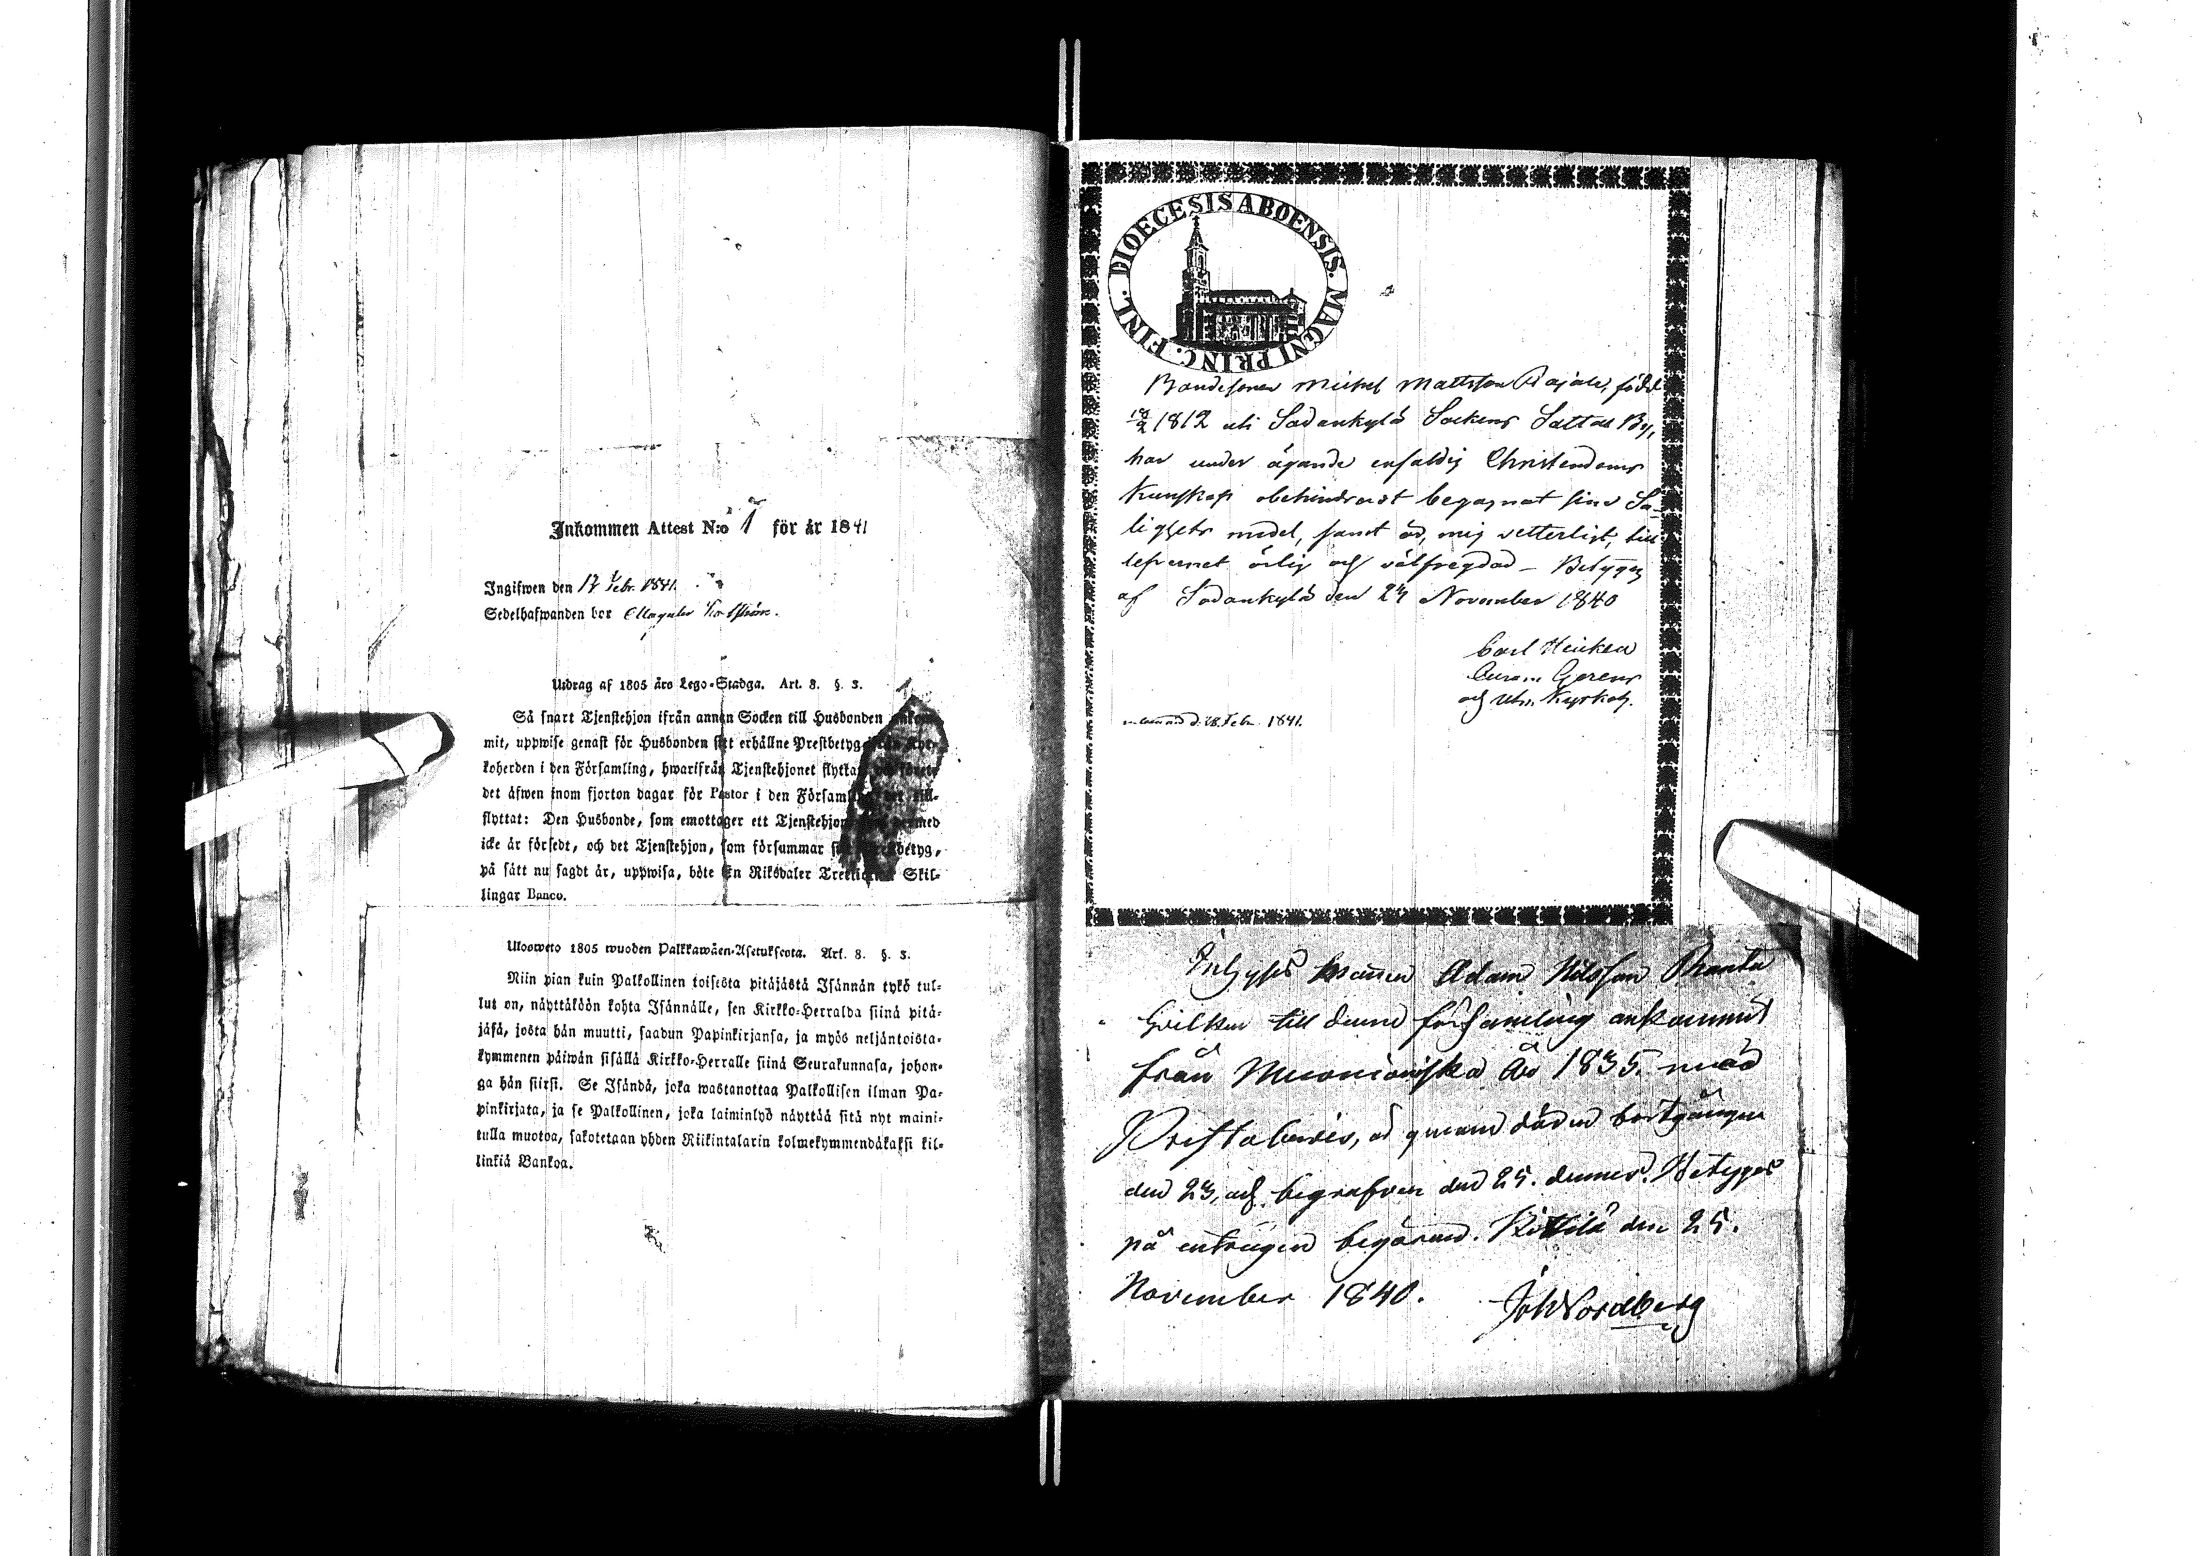 Inkommen Attest N:o 1 för år 1841
Ingifwen den 17 Febr. 1841.
Sedelhafwanden bor
Utdrag af 1805 års Lego-Stadga. Art. 8. §. 3.
Så snart Tjenstehjon ifrån annan Socken till Husbonden ankom-
mit, uppwise genast för Husbonden sitt erhållne Prestbetyg ifrån Kyr-
koherden i den Församling, hwarifrån Tjenstehjonet flyttat,
det äfwen inom fjorton dagar för Pastor i den Församling det till-
flyttat: Den Husbonde, som emottager ett Tjenstehjon dermed
icke är försedt, och det Tjenstehjon, som försummar sitt Prestbetyg,
på sätt nu sagdt är, uppwisa, böte En Riksdaler Trettiotwå Skil-
lingar Banco.
Uloswето 1805 wuoden Palkkawäen-Asetuksesta. Art. 8. §. 3.
Niin pian kuin Palkollinen toisesta pitäjästä Isännän tykö tul-
lut on, näyttäköön kohta Isännälle, sen Kirkko-Herralda siinä pitä-
jäsä, josta hän muutti, saadun Papinkirjansa, ja myös neljäntoista-
kymmenen päiwän sisällä Kirkko-Herralle siinä Seurakunnasa, johon-
ga hän siirsi. Se Isändä, joka wastanottaa Palkollisen ilman Pa-
pinkirjata, ja se Palkollinen, joka laiminlyö näyttää sitä nyt maini-
tulla muotoa, sakotetaan yhden Riikintalarin kolmekymmendäkaksi kil-
linkiä Bankoa.
DIOECESIS ABOENSIS. MAGNI PRINC. FINL.
Bondesonen Michel Mattsson Rajala, född
18/2 1812 uti Sodankylä Sockens Sattas By,
har under ägande enfaldig Christendoms
Kunskap obehindradt begagnat sine Sa-
lighets medel, samt är, mig vetterligt, till
lefvernet ärlig och välfregdad – Betygas
af Sodankylä den 24 November 1840
Carl Heiken
och Kyrkoh.
d. 18 Febr. 1841.
Intygas Adam Nilsson Ranta
hvilken till denna församling ankommit
från Muonioniska År 1835. med
Prestabevis, är genom döden bortgången
den 23, och begrafven den 25. dennes. Betygas
på enträgen begäran. Kittilä den 25.
November 1840. Joh Nordberg